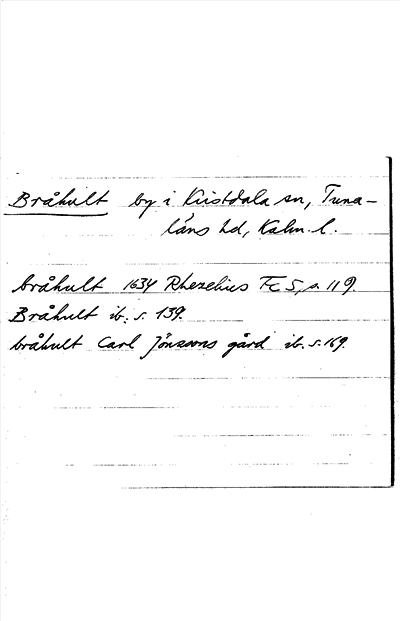 Bråhult by i Kristdala sn, Tuna-
läns hd, Kalm. l.
bråhult 1634 Rhezelius Fc 5, s. 119.
Bråhult ib. s. 139.
bråhult Carl Jönssons gård ib. s. 169.